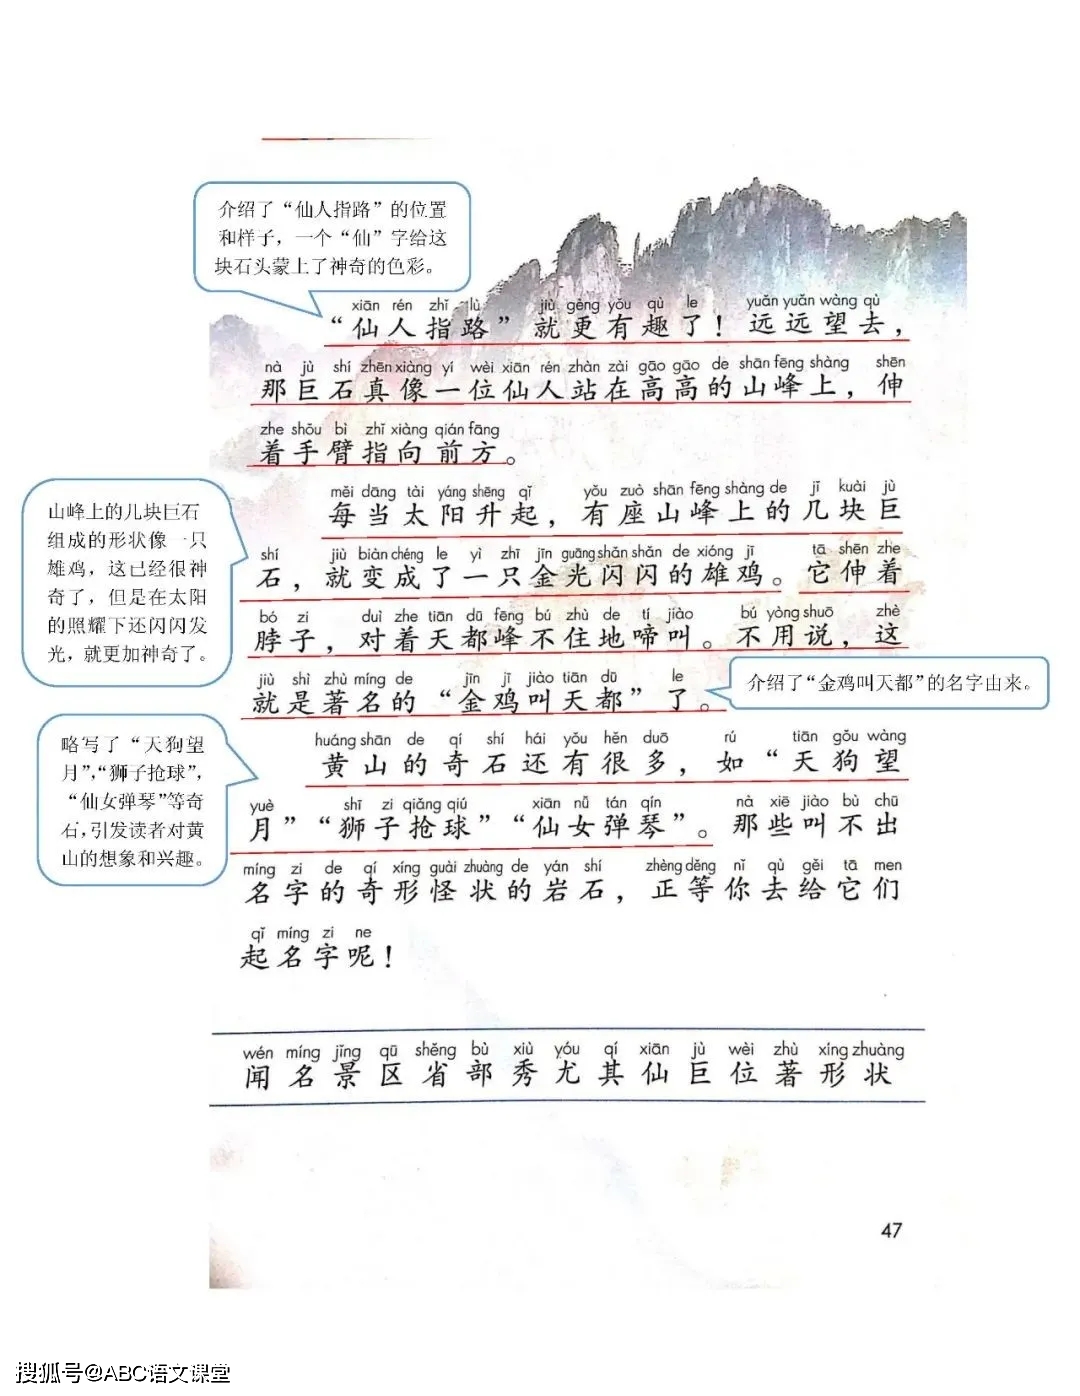 介绍了“仙人指路”的位置
和样子，一个“仙”字给这
块石头蒙上了神奇的色彩。
xiān rén zhǐ lù jiù gèng yǒu qù le yuǎn yuǎn wàng qù
“仙人指路”就更有趣了！远远望去，
nà jù shí zhēn xiàng yí wèi xiān rén zhàn zài gāo gāo de shān fēng shàng shēn
那巨石真像一位仙人站在高高的山峰上，伸
zhe shǒu bì zhǐ xiàng qián fāng
着手臂指向前方。
měi dāng tài yáng shēng qǐ yǒu zuò shān fēng shàng de jǐ kuài jù
每当太阳升起，有座山峰上的几块巨
shí jiù biàn chéng le yì zhī jīn guāng shǎn shǎn de xióng jī tā shēn zhe
石，就变成了一只金光闪闪的雄鸡。它伸着
bó zi duì zhe tiān dū fēng bú zhù de tí jiào bú yòng shuō zhè
脖子，对着天都峰不住地啼叫。不用说，这
jiù shì zhù míng de jīn jī jiào tiān dū le
就是著名的“金鸡叫天都”了。
山峰上的几块巨石
组成的形状像一只
雄鸡，这已经很神
奇了，但是在太阳
的照耀下还闪闪发
光，就更加神奇了。
介绍了“金鸡叫天都”的名字由来。
huáng shān de qí shí hái yǒu hěn duō rú tiān gǒu wàng
黄山的奇石还有很多，如“天狗望
yuè shī zi qiǎng qiú xiān nǚ tán qín nà xiē jiào bù chū
月”“狮子抢球”“仙女弹琴”。那些叫不出
míng zi de qí xíng guài zhuàng de yán shí zhèng děng nǐ qù gěi tā men
名字的奇形怪状的岩石，正等你去给它们
qǐ míng zi ne
起名字呢！
略写了“天狗望
月”，“狮子抢球”，
“仙女弹琴”等奇
石，引发读者对黄
山的想象和兴趣。
wén míng jǐng qū shěng bù xiù yóu qí xiān jù wèi zhù xíng zhuàng
闻名景区省部秀尤其仙巨位著形状
47
搜狐号@ABC语文课堂